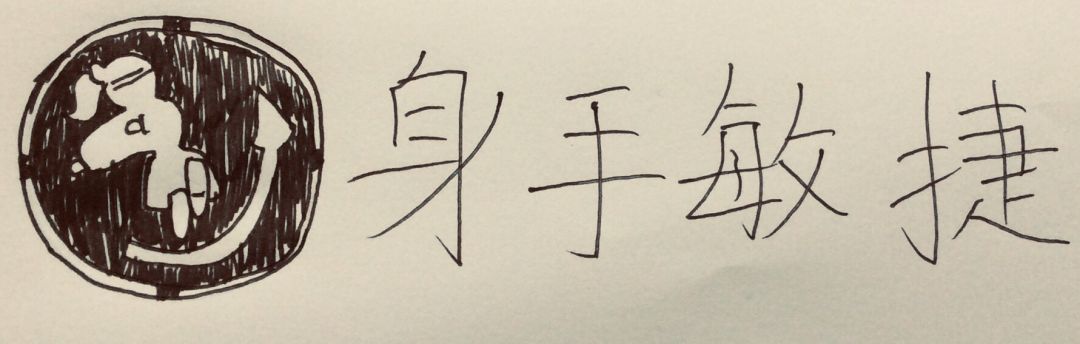 a
身手敏捷